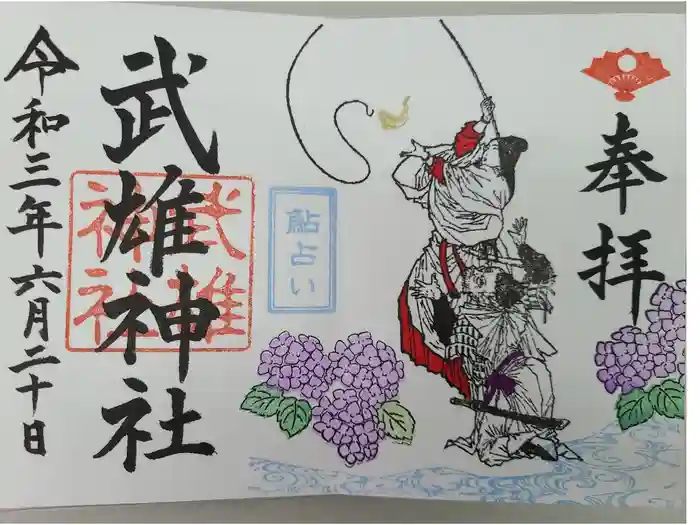 奉拝
鮎占い
武雄神社
武雄
神社
令和三年六月二十日